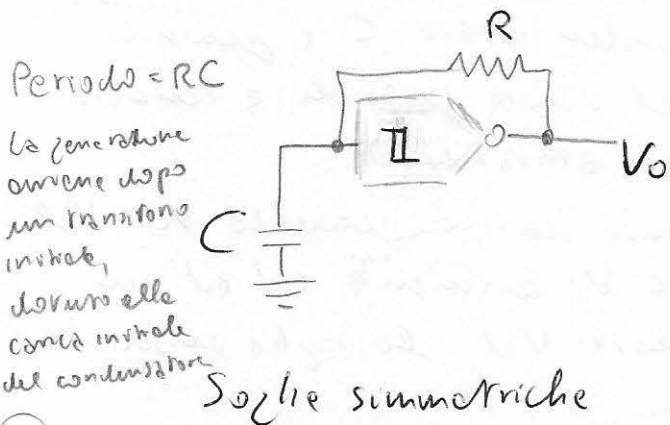 Periodo = RC
La generazione
avviene dopo
un transitorio
iniziale,
dovuto alla
carica iniziale
del condensatore
R
C
Vo
Soglie simmetriche